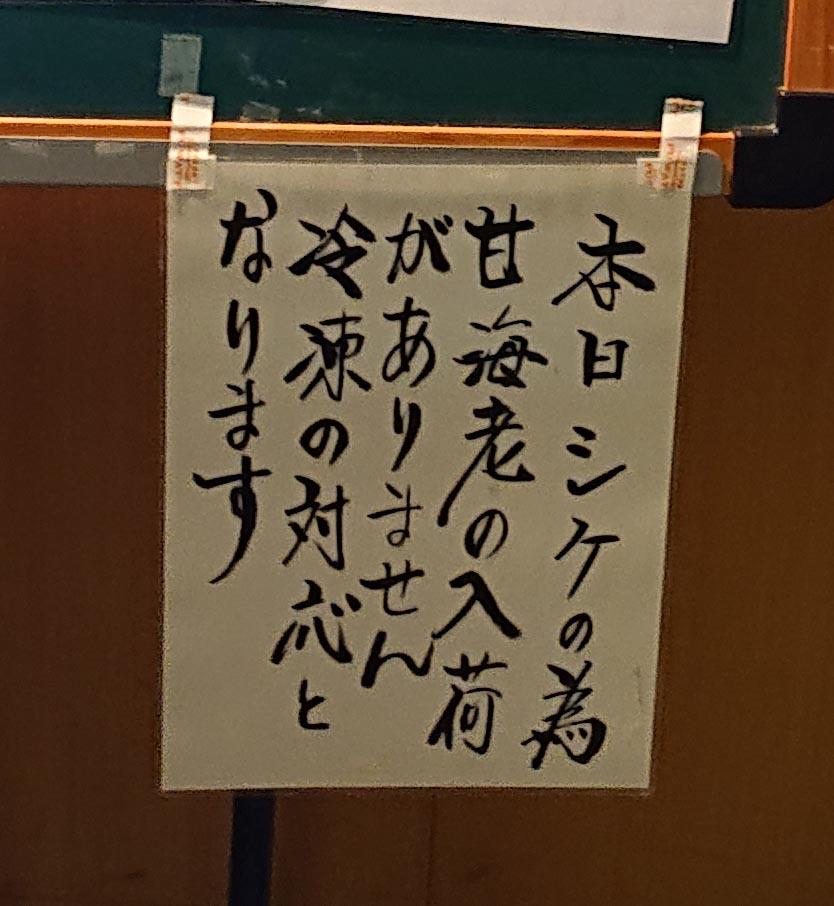 本日シケの為
甘海老の入荷
がありません
冷凍の対応と
なります